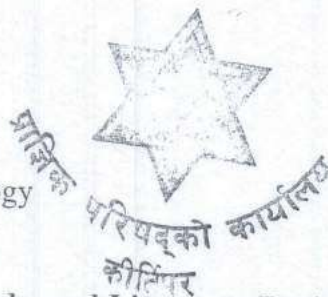 gy
प्राज्ञिक परिषद्को कार्यालय
कीर्तिपुर